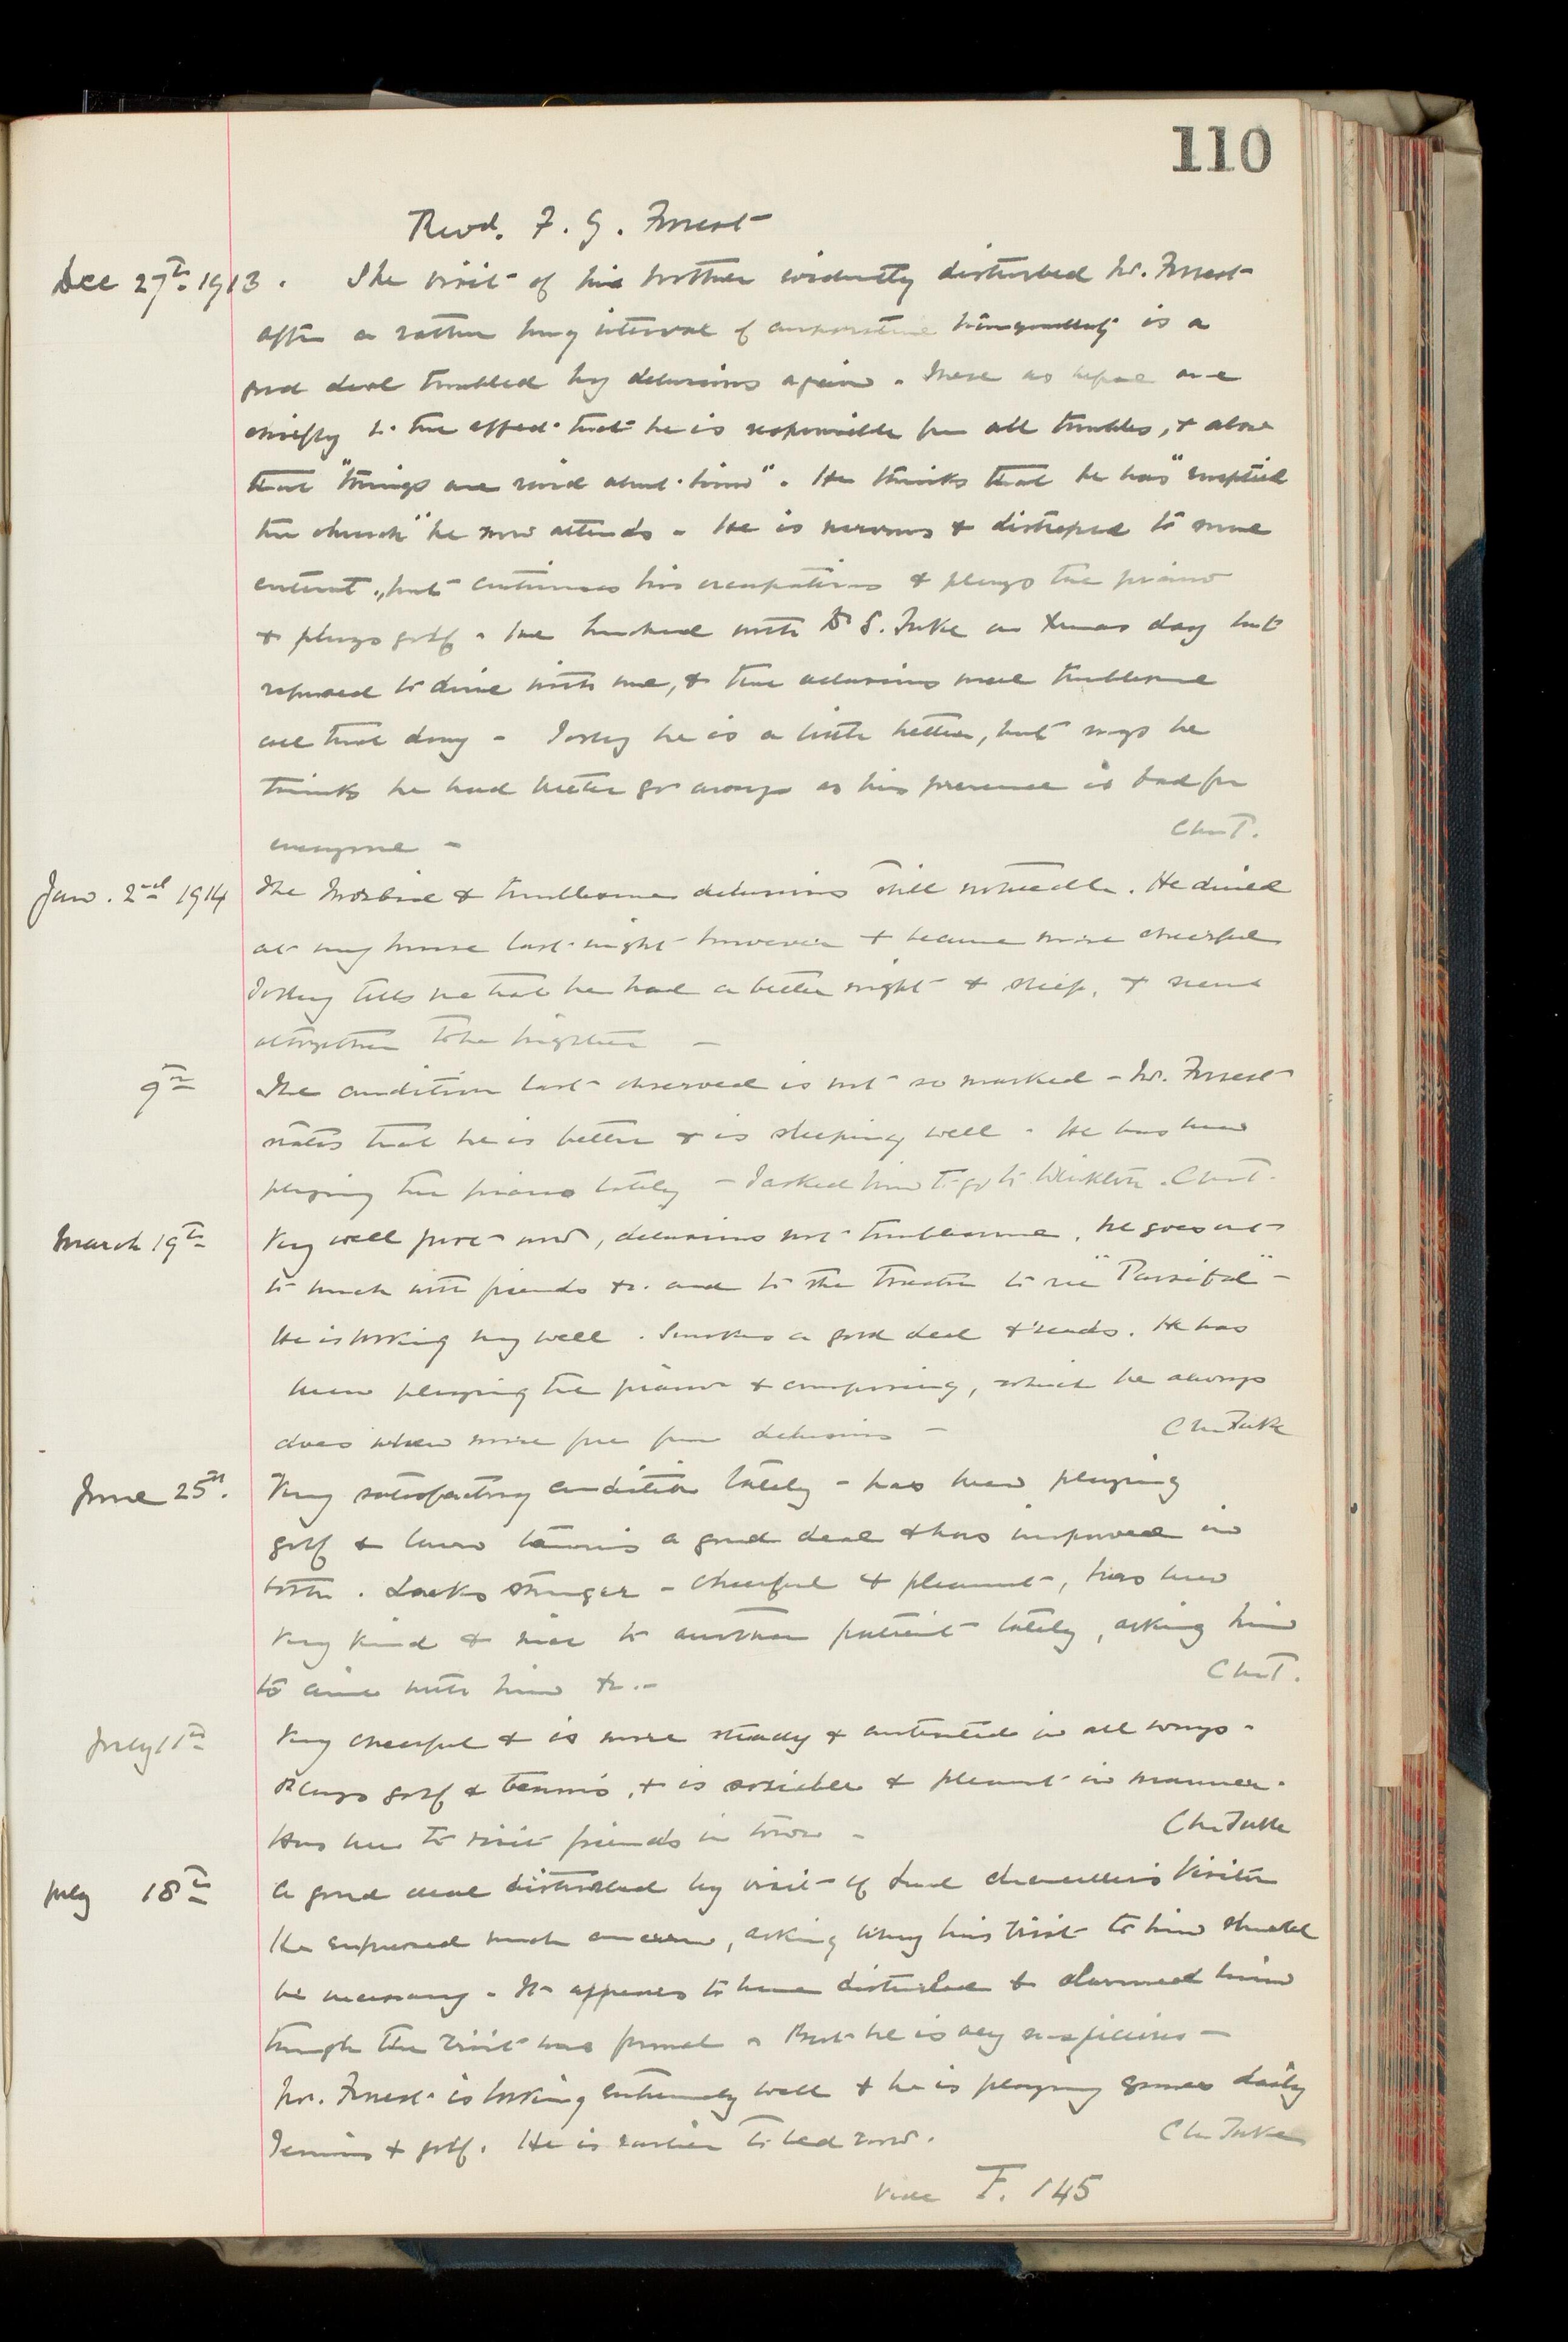 110
Revd. F. G. Forrest
Dec 27th 1913. The visit of his brother evidently disturbed Mr. Forrest
after a rather long interval of comparative tranquillity is a
good deal troubled by delusions again. These as before are
chiefly to the effect that he is responsible for all troubles, & also
that "things are said about him". He thinks that he has "emptied
the church" he now attends - He is nervous & distressed to some
extent, but continues his occupations & plays the piano
& plays golf. He lunched with Dr S. Tuke on Xmas day but
refused to dine with me, & the delusions were troublesome
all that day - Today he is a little better, but says he
thinks he had better go away as his presence is bad for
everyone - Ch M T.
Jan. 2nd 1914 The morbid & troublesome delusions still noticeable. He dined
at my house last night however & became more cheerful
Today tells me that he had a better night & sleep, & seems
altogether to be brighter -
9th The condition last observed is not so marked - Mr. Forrest
states that he is better & is sleeping well - He has been
playing the piano lately - I asked him to go to . Ch M T.
March 19th Very well just now, delusions not troublesome, he goes out
to lunch with friends &c. and to the Theatre to see "Parsifal" -
He is looking very well. Smokes a good deal & reads. He has
been playing the piano & composing, which he always
does when more free from delusions - Ch M Tuke
June 25th. Very satisfactory condition lately - has been playing
golf & lawn tennis a good deal & has improved in
both. Looks stronger - cheerful & pleasant, has been
very kind & nice to another patient lately, asking him
to dine with him &c. - Ch M T.
July 11th Very cheerful & is more steady & contented in all ways -
Plays golf & tennis, & is sociable & pleasant in manner.
Has been to visit friends in town - Ch M Tuke
July 18th A good deal disturbed by visit of Lord Chancellor's Visitor
He expressed much concern, asking why his visit to him should
be necessary - It appears to have disturbed & alarmed him
though the visit was formal - But he is very suspicious -
Mr. Forrest is looking extremely well & he is playing games daily
Tennis & golf. He is earlier to bed now. Ch M Tuke
vide F. 145